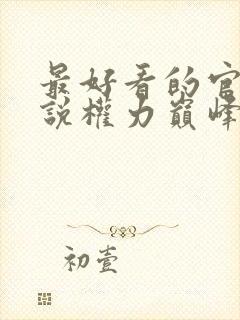 最好看的官
說權力巔峰
初壹